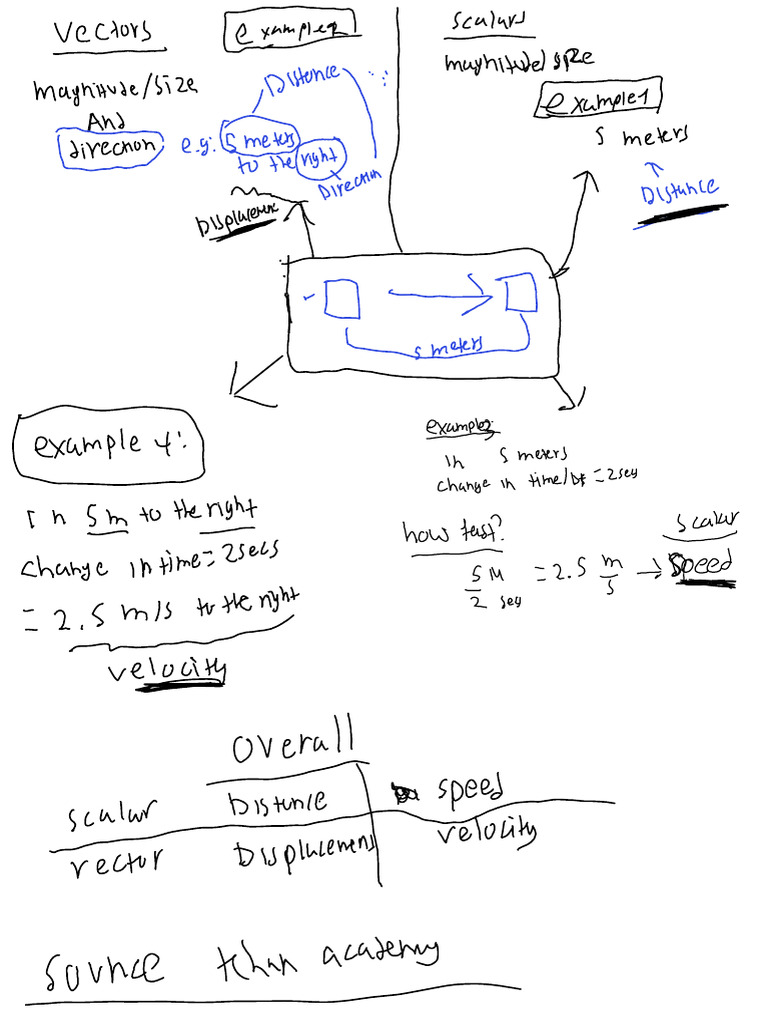 vectors
example2
magnitude/size
And
direction
e.g: 5 meters
to the right
Distance
Direction
Displacement
scalars
magnitude/size
example1
5 meters
Distance
5 meters
example 4:
In 5m to the right
change in time=2secs
= 2.5 m/s to the right
velocity
example3
in 5 meters
change in time/Dt =2sec
how fast?
5 M
2 sec
= 2.5 m/s → speed
scalar
overall
scalar Distance speed
vector Displacement velocity
source khan academy